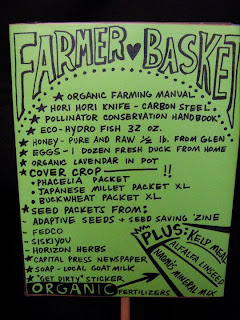 FARMER ♥ BASKET
★ ORGANIC FARMING MANUAL
★ HORI HORI KNIFE - CARBON STEEL
★ POLLINATOR CONSERVATION HANDBOOK
★ ECO-HYDRO FISH 32 OZ.
★ HONEY - PURE AND RAW ½ lb. FROM GLEN
★ EGGS - 1 DOZEN FRESH DUCK FROM HOME
★ ORGANIC LAVENDAR IN POT
★ COVER CROP — !!
• PHACELIA PACKET
• JAPANESE MILLET PACKET XL
• BUCKWHEAT PACKET XL
★ SEED PACKETS FROM:
- ADAPTIVE SEEDS + SEED SAVING 'ZINE
- FEDCO
- SISKIYOU
- HORIZON HERBS
★ CAPITAL PRESS NEWSPAPER
★ SOAP - LOCAL GOAT MILK
★ "GET DIRTY" STICKER
PLUS: KELP MEAL
ALFALFA LINSEED
NAOMI'S MINERAL MIX
ORGANIC FERTILIZERS